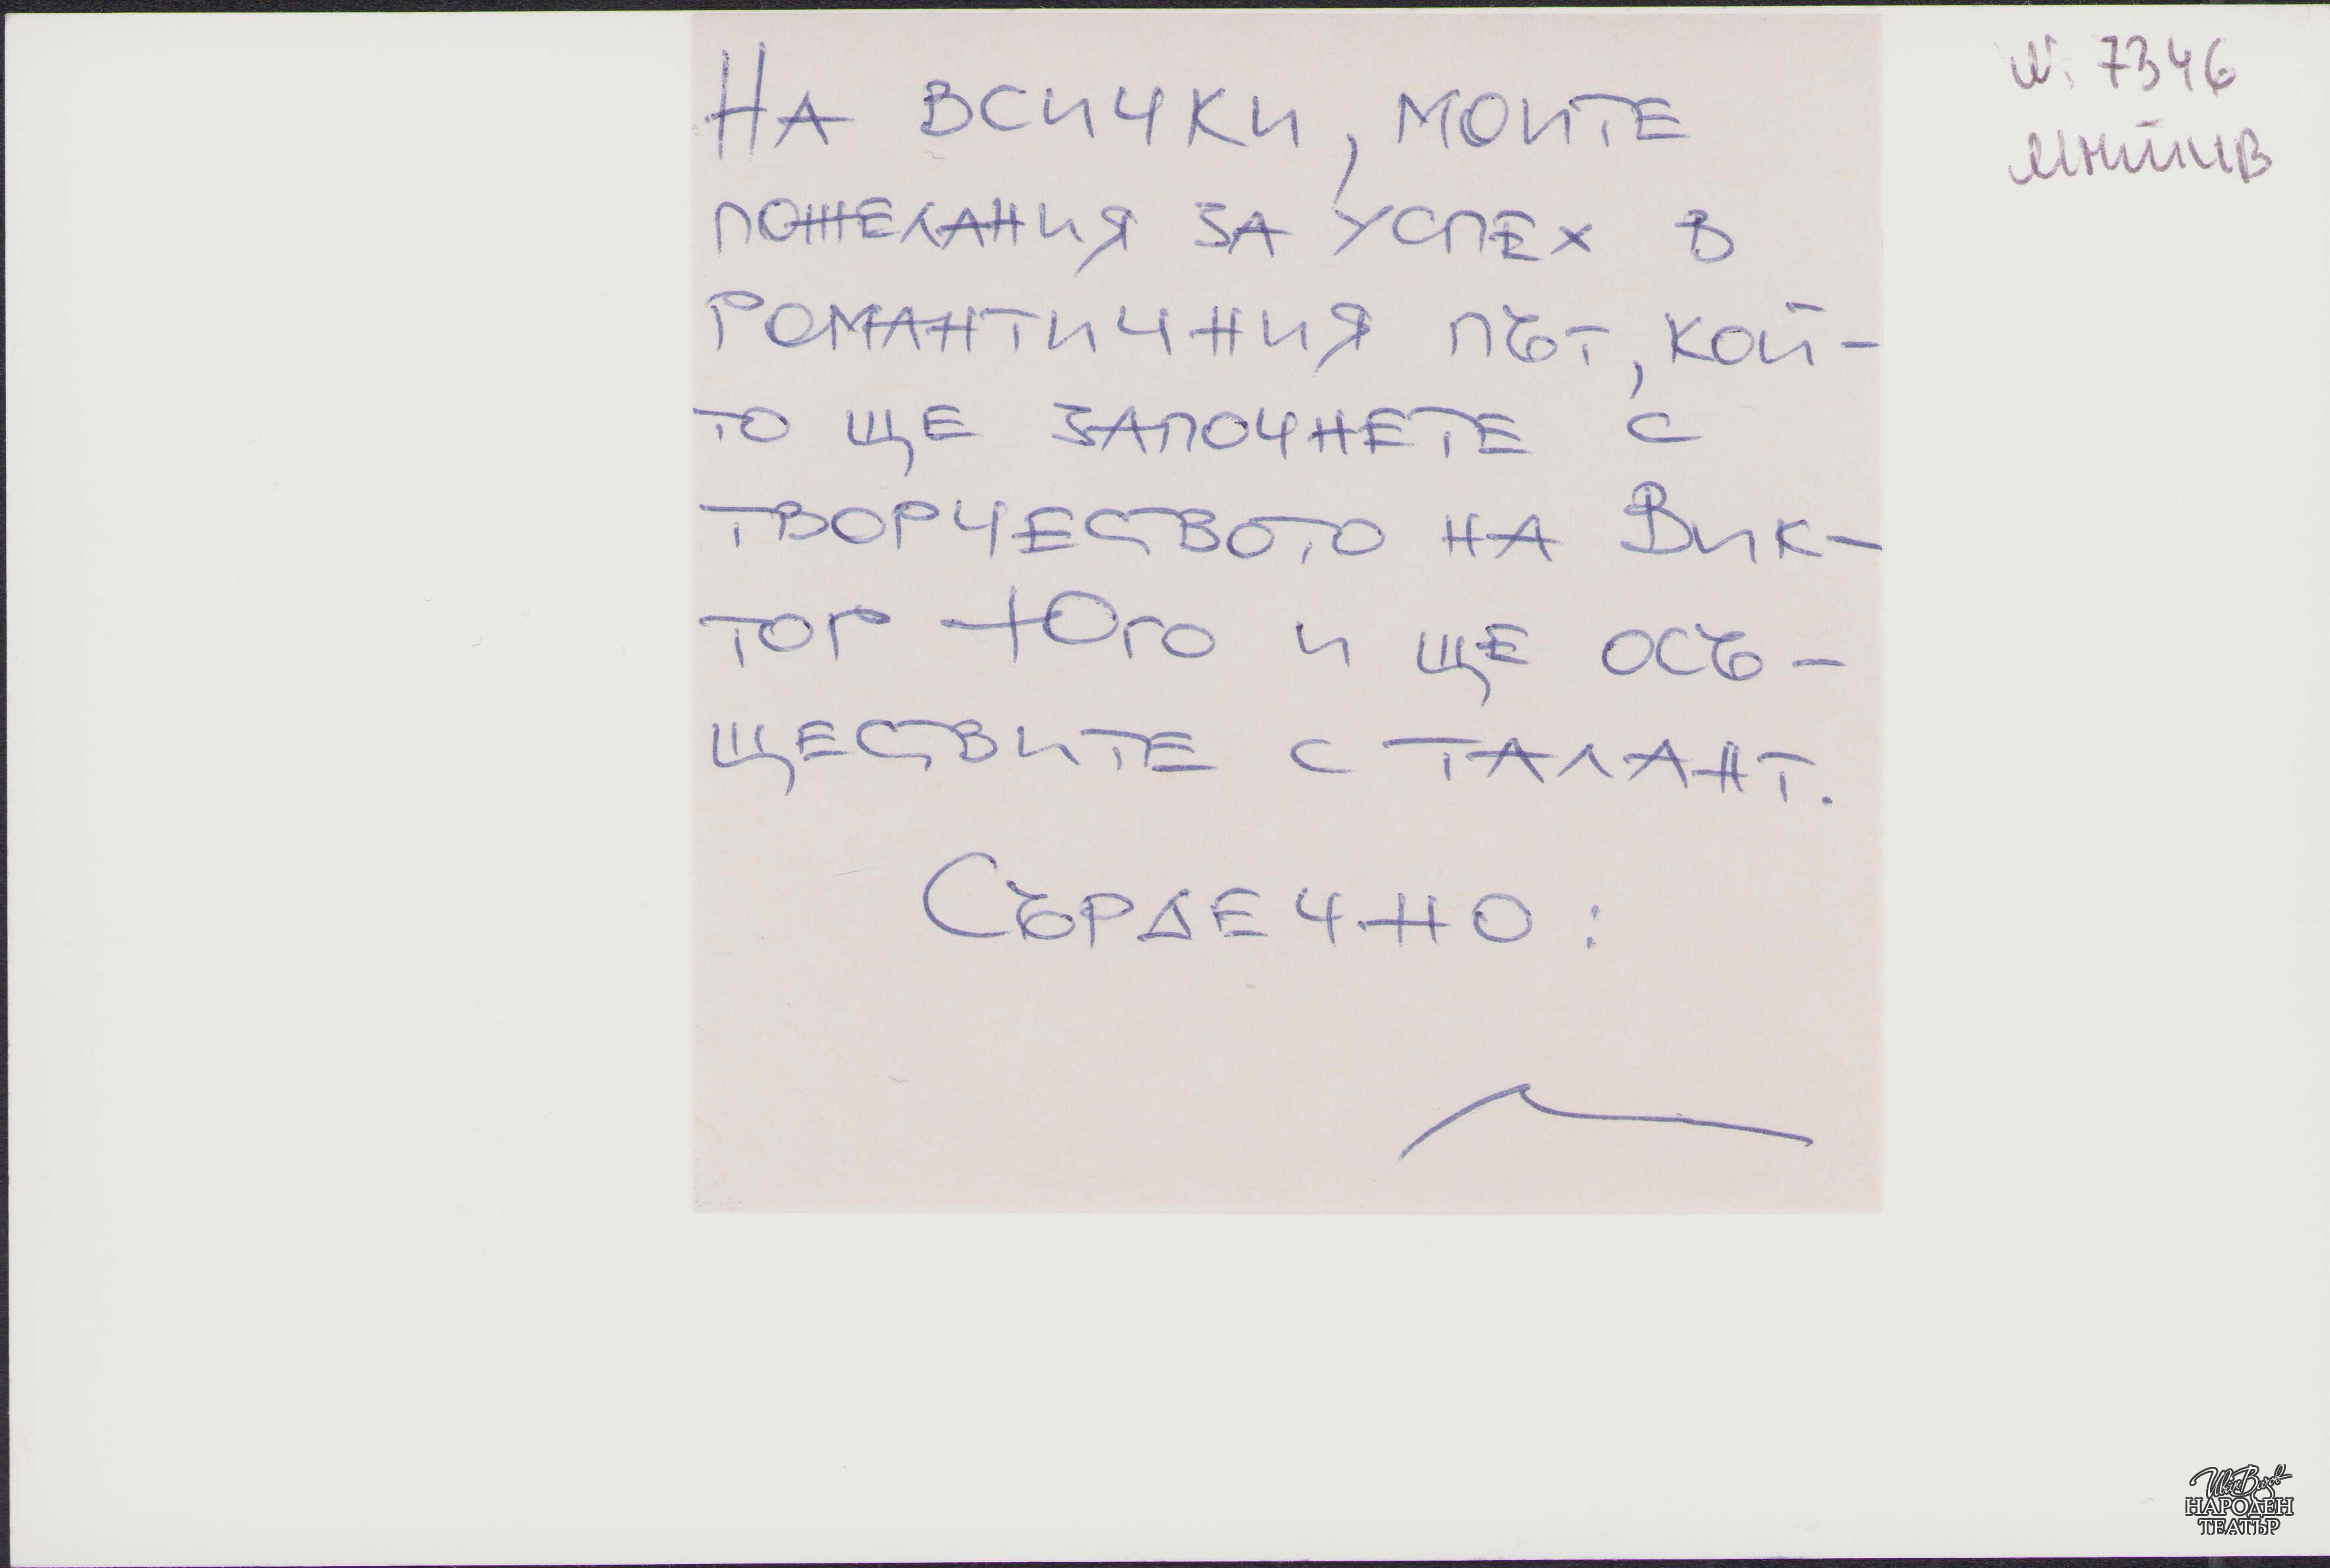 На всички, моите
пожелания за успех в
романтичния път, кой-
то ще започнете с
творчеството на Вик-
тор Юго и ще осъ-
ществите с талант.
Сърдечно:
И. 7346
МНТИВ
Иван Вазов
НАРОДЕН
ТЕАТЪР